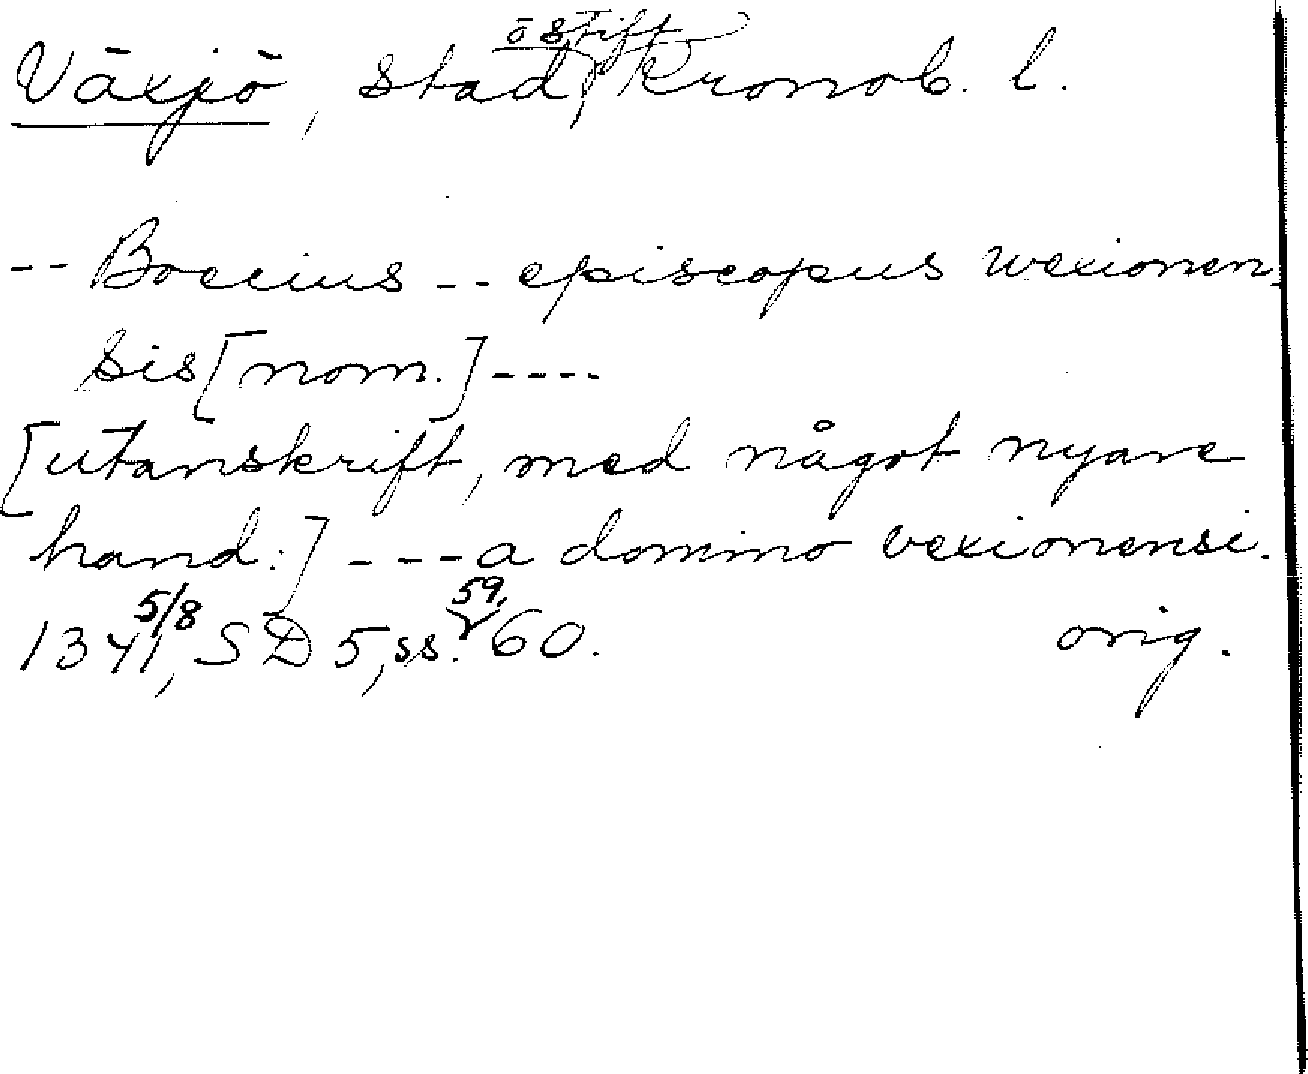 Växjö, stad, o stift Kronob. l.
-- Boecius -- episcopus wexionen-
sis [nom.] ----
[utanskrift, med något nyare
hand:] --- a domino vexionensi.
1341 5/8, SD 5, ss. 59, 60. orig.